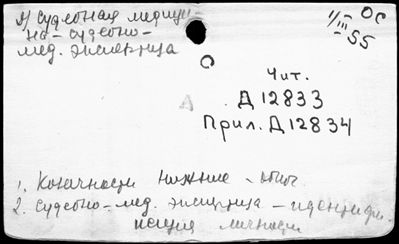 я) судебная медици
на - судебно -
мед. экспертиза
ОС
1/III 55
Чит.
Д 12833
Прил. Д 12834
1. Конечности нижние -
2. Судебно-мед. экспертиза - идентифи-
кация личности